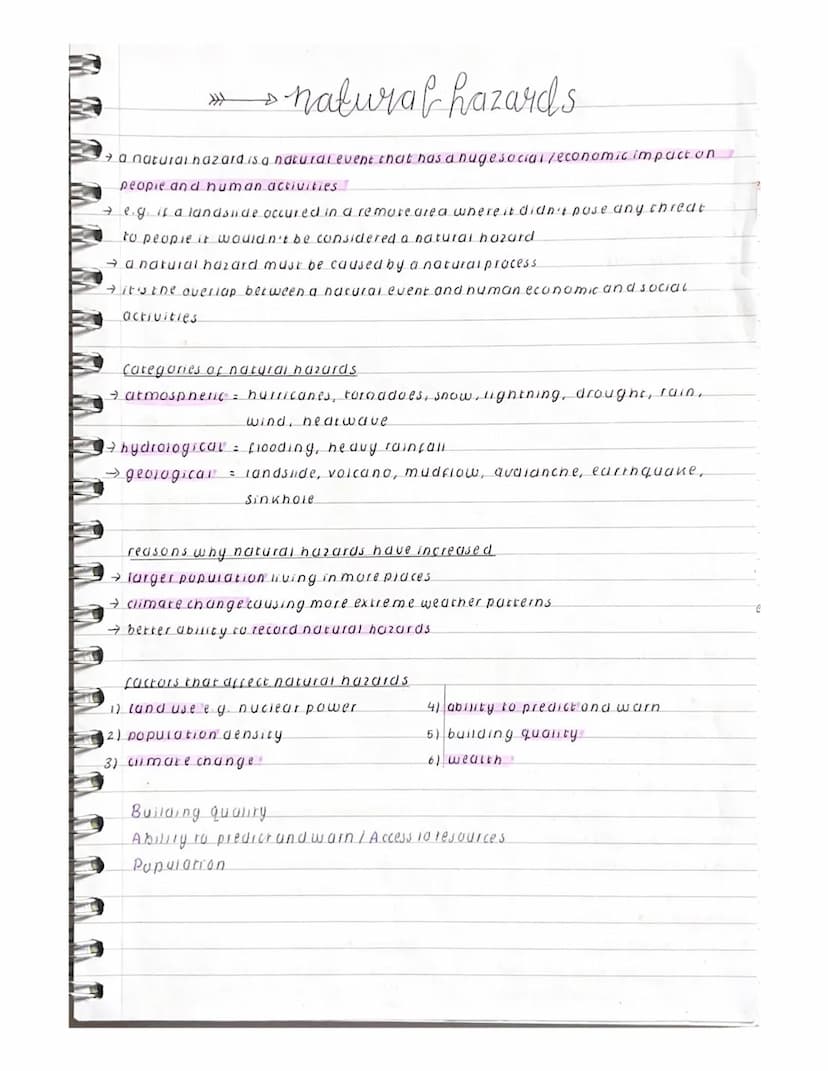 natural hazards
→ a natural hazard is a natural event that has a huge social/economic impact on
people and human activities
→ e.g. if a landslide occured in a remote area where it didn't pose any threat
to people it wouldn't be considered a natural hazard
→ a natural hazard must be caused by a natural process
→ it's the overlap between a natural event and human economic and social
activities
categories of natural hazards
→ atmospheric = hurricanes, toronadoes, snow, lightning, drought, rain,
wind, heatwave
→ hydrological = flooding, heavy rainfall
→ geological = landslide, volcano, mudflow, avalanche, earthquake,
sinkhole
reasons why natural hazards have increased
→ larger population living in more places
→ climate change causing more extreme weather patterns
→ better ability to record natural hazards
factors that affect natural hazards
1) land use e.g. nuclear power
2) population density
3) climate change
4) ability to predict and warn
5) building quality
6) wealth
Building quality
Ability to predict and warn / Access to resources
Population